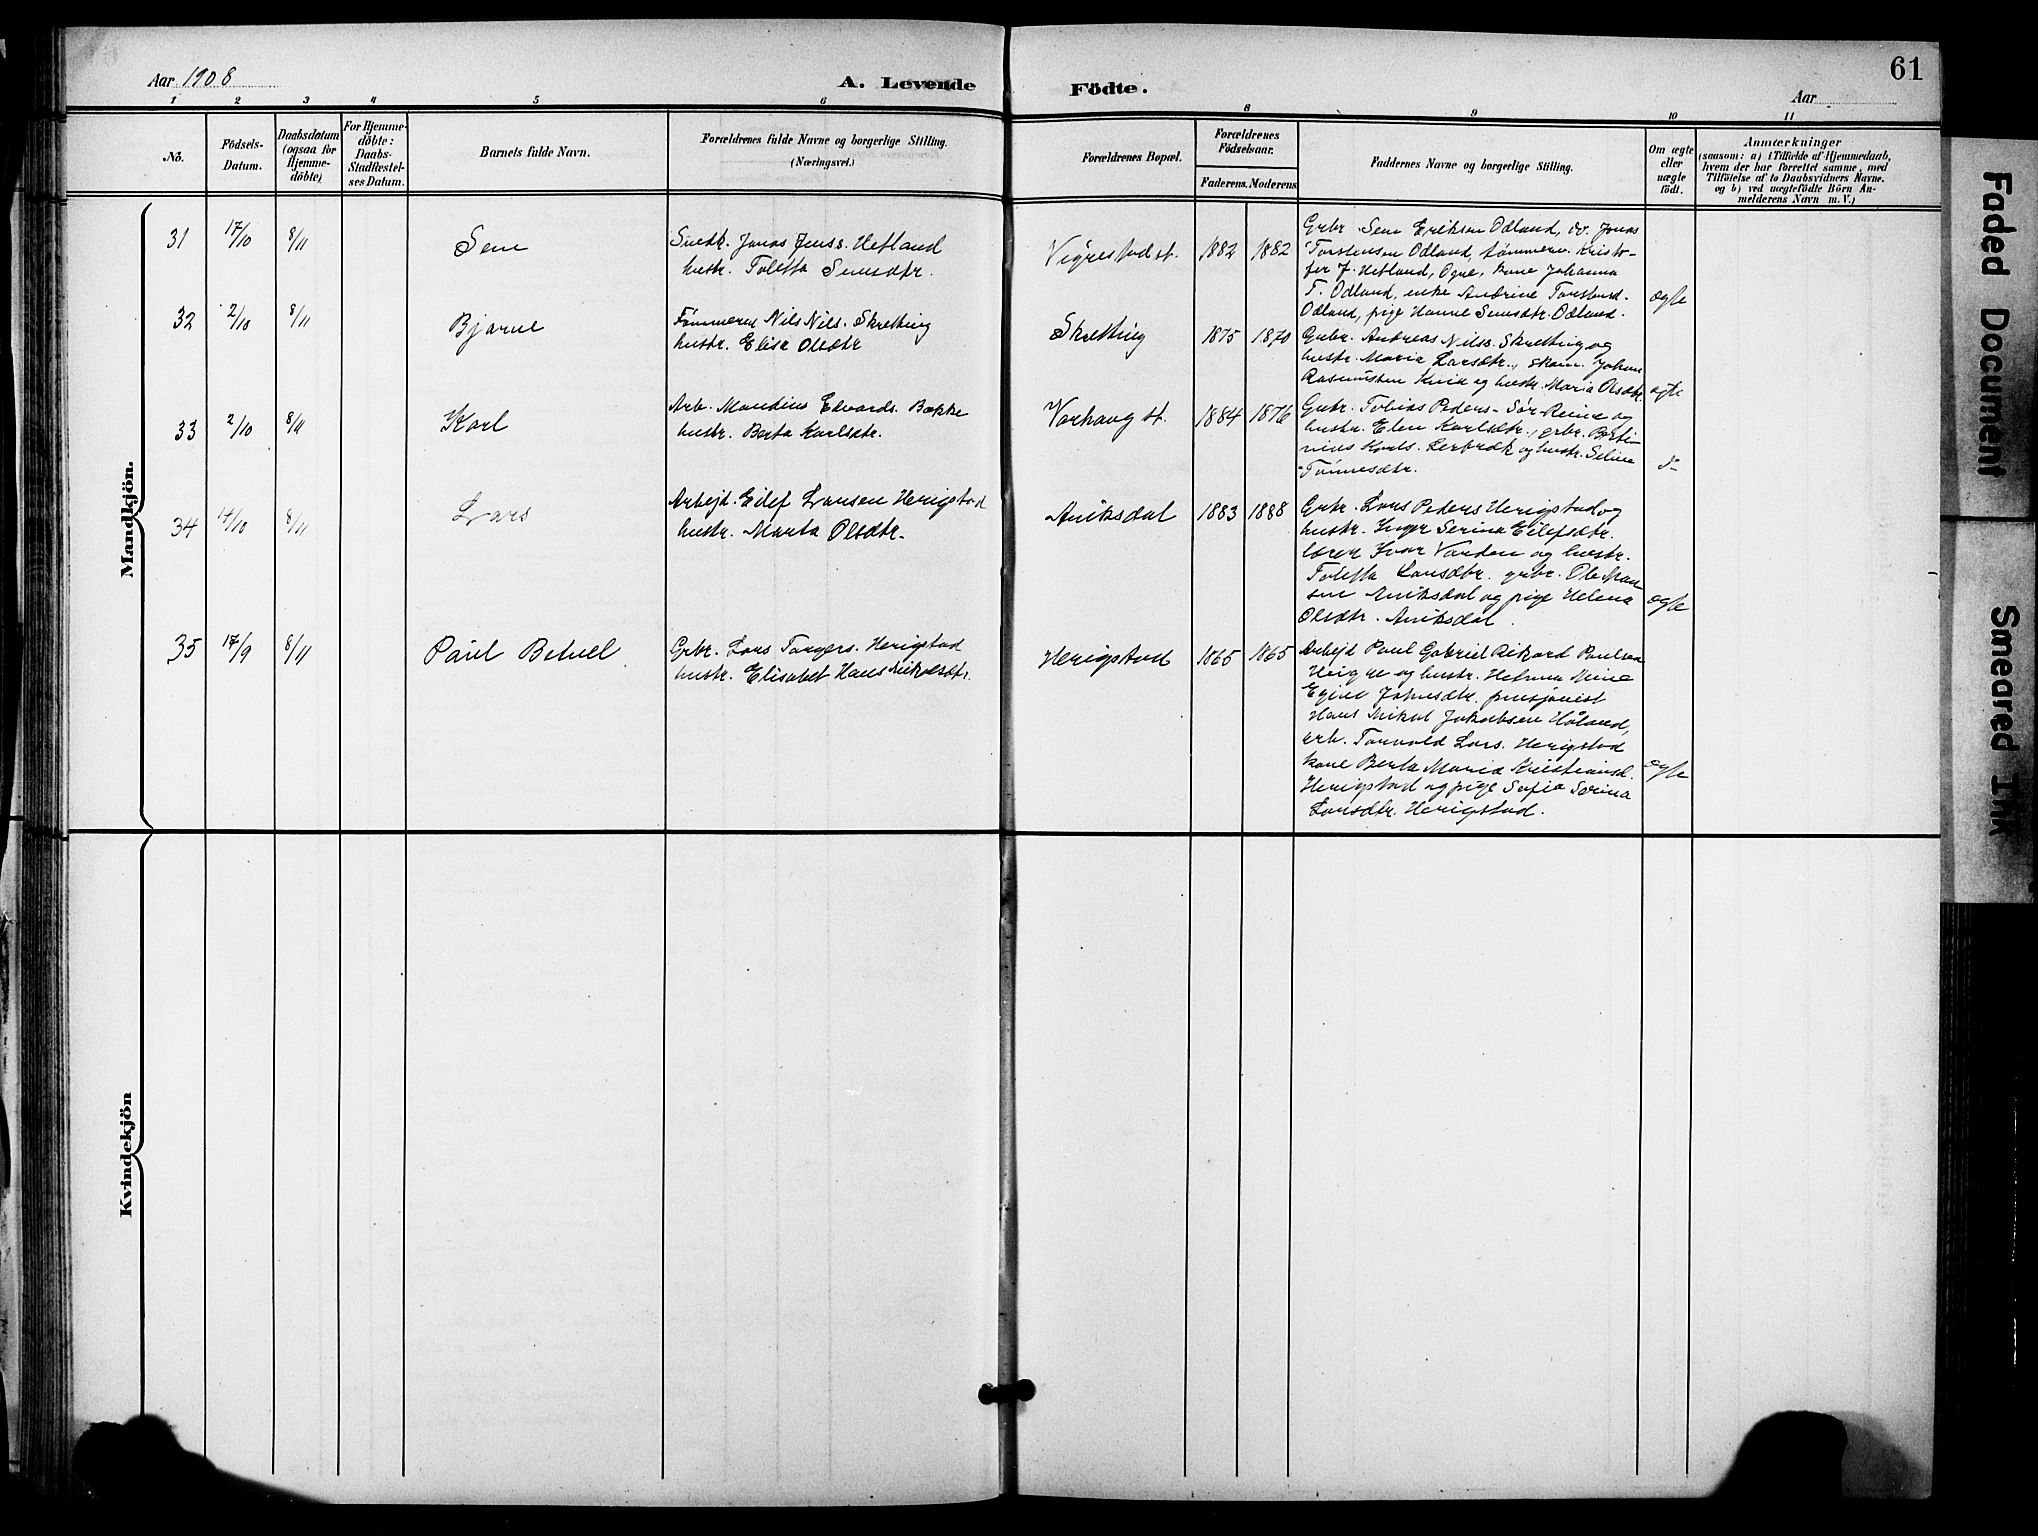 Aar 1908
A. Levende
Födte.
Aar
61
1 2 3 4 5 6 8 9 10 11
No.
Födsels-
Datum.
Daabsdatum
(ogsaa for
Hjemme-
döbte)
For Hjemme-
döbte:
Daabs-
Stadfæstel-
ses Datum.
Barnets fulde Navn.
Forældrenes fulde Navne og borgerlige Stilling.
(Næringsvei.)
Forældrenes Bopæl.
Forældrenes
Födselsaar.
Faderens. Moderens
Faddernes Navne og borgerlige Stilling.
Om ægte
eller
uægte
födt.
Anmærkninger
(saasom: a) i Tilfælde af Hjemmedaab,
hvem der har forrettet samme, med
Tilföielse af to Daabsvidners Navne.
og b) ved uægtefödte Börn An-
melderens Navn m. V.)
Mandkjön.
31 17/10 8/11 Sem
Snedk. Jonas Jenss. Hetland
hustr. Toletta Semsdtr.
Vigrestad st. 1882 1882
Grbr. Sem Eriksen Odland, do. Jonas
Torstensen Odland, tømmerm. Kristo-
fer J. Hetland, Ogne, kone Johanna
T. Odland, enke Andrine Torstensd.
Odland, pige Hanne Semsdtr. Odland.
ægte
32 2/10 8/11 Bjarne
Tømmerm Nils Nils. Skretting
hustr. Elise Olsdtr
Skretting 1875 1870
Grbr. Andreas Nilss. Skretting og
hustr. Maria Larsdtr., skom. Johan
Rasmussen Kvia og hustr. Maria Olsdtr.
ægte
33 2/10 8/11 Karl
Arb. Maudius Edvards. Bække
hustr. Berta Karlsdtr.
Varhaug st. 1884 1876
Grbr. Tobias Peders. Sør-Reime og
hustr. Elen Karlsdtr., grbr. Berti-
nius Karls. Lerbræk og hustr. Seline
Tønnesdtr.
d-
34 14/10 8/11 Lars
Arbejd. Eilef Larsen Herigstad
hustr. Marta Olsdtr.
Aniksdal 1883 1888
Grbr. Lars Peders Herigstad og
hustr. Inger Serina Eilefsdtr.
lærer Ivar Varden og hustr.
Toletta Larsdtr. grbr. Ole Han
sen Aniksdal og pige Helena
Olsdtr. Aniksdal.
ægte
35 17/9 8/11 Paul Betuel
Grbr. Lars Tangers. Herigstad
hustr. Elisabet Hans Mikalsdtr.
Herigstad 1865 1865
Arbejd Paul Gabriel Rikard Paulsen
Høigre og hustr. Helmina Mine
Johnsdtr. pensjonist
Hans Mikal Jakobsen Håland,
arb. Torvald Lars. Herigstad
kone Berta Maria Kristiansd.
Herigstad og pige Sofie Serina
Larsdtr. Herigstad.
ægte
Kvindekjön
Faded Document
Smeared Ink